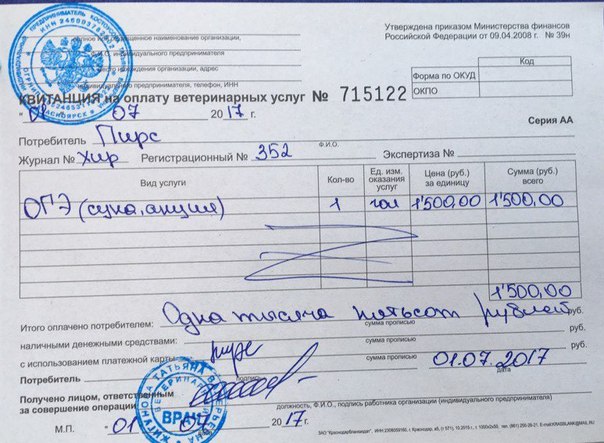 Утверждена приказом Министерства финансов
Российской Федерации от 09.04.2008 г. № 39н
Код
Форма по ОКУД
ОКПО
КВИТАНЦИЯ на оплату ветеринарных услуг № 715122
" 01 " 07 2017 г.
Серия АА
Потребитель Пирс
Ф.И.О.
Журнал № Хир Регистрационный № 352 Экспертиза №
Вид услуги Кол-во Ед. изм. оказания услуг Цена (руб.) за единицу Сумма (руб.) всего
ОГЭ (сука, акция) 1 гол 1'500,00 1'500,00
1'500,00
Итого оплачено потребителем: Одна тысяча пятьсот рублей руб.
сумма прописью
наличными денежными средствами: руб.
сумма прописью
с использованием платежной карты руб.
сумма прописью
Потребитель 01.07.2017
подпись дата
Получено лицом, ответственным
за совершение операции
должность, Ф.И.О., подпись работника организации (индивидуального предпринимателя)
М.П. " 01 " 07 2017 г.
ВРАЧ